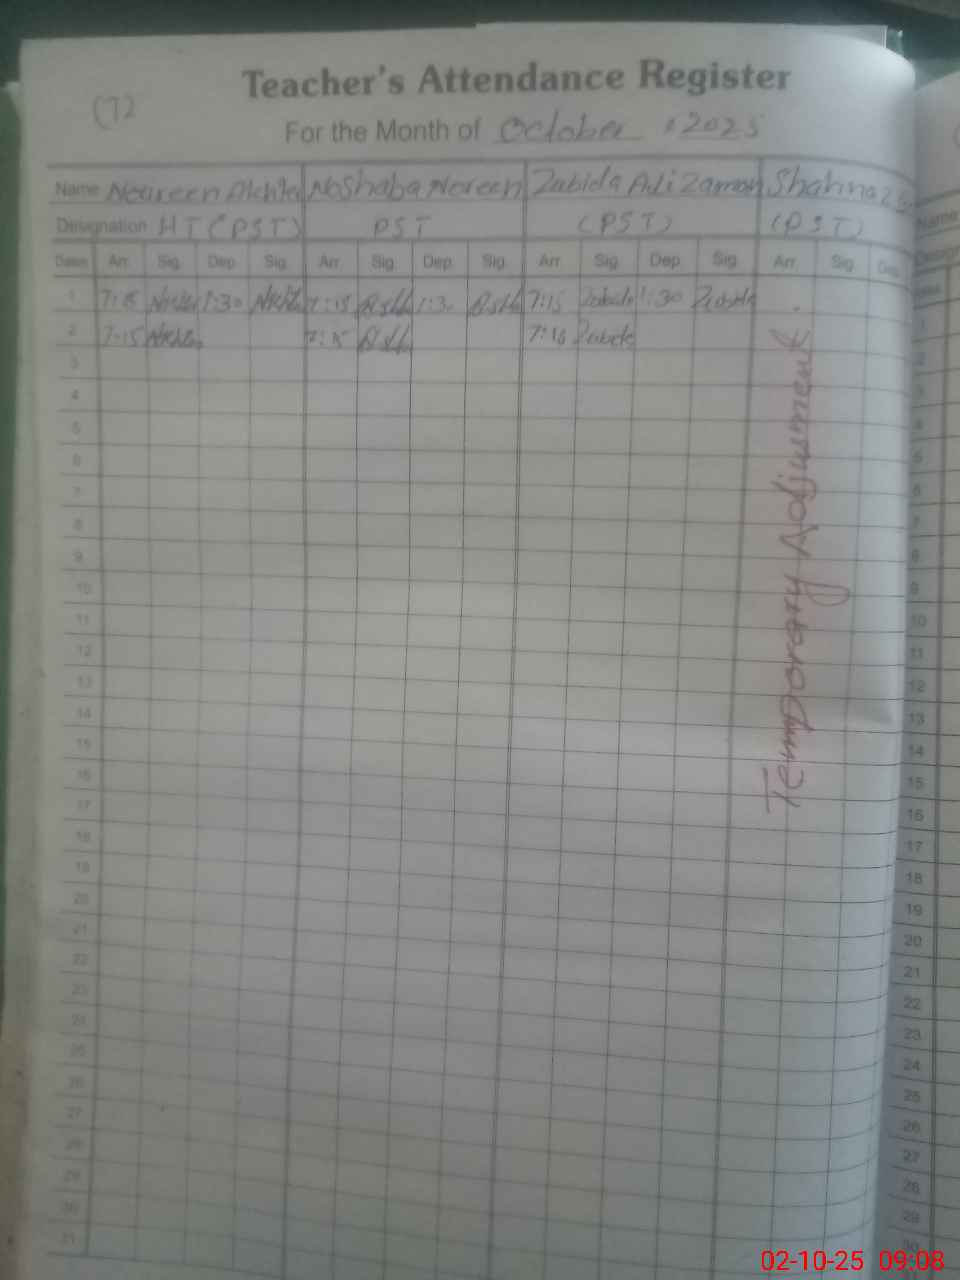 Teacher's Attendance Register
(72
For the Month of October , 2025
Name Noureen Akhtar Noshaba Noreen Zabida Adizaman Shahnaz
Designation HT (PST) PST (PST) (PST)
Dates Arr. Sig. Dep. Sig. Arr. Sig. Dep. Sig. Arr. Sig. Dep. Sig. Arr. Sig. Dep.
1 7:15 1:30 7:15 1:30 7:15 Zabida 1:30 Zabida
2 7:15 7:15 7:15 Zabida
3
4
5
6
7
8
9
10
11
12
13
14
15
16
17
18
19
20
21
22
23
24
25
26
27
28
29
30
31
Temporary Adjusment
Name
1
2
3
4
5
6
7
8
9
10
11
12
13
14
15
16
17
18
19
20
21
22
23
24
25
26
27
28
29
30
02-10-25 09:08